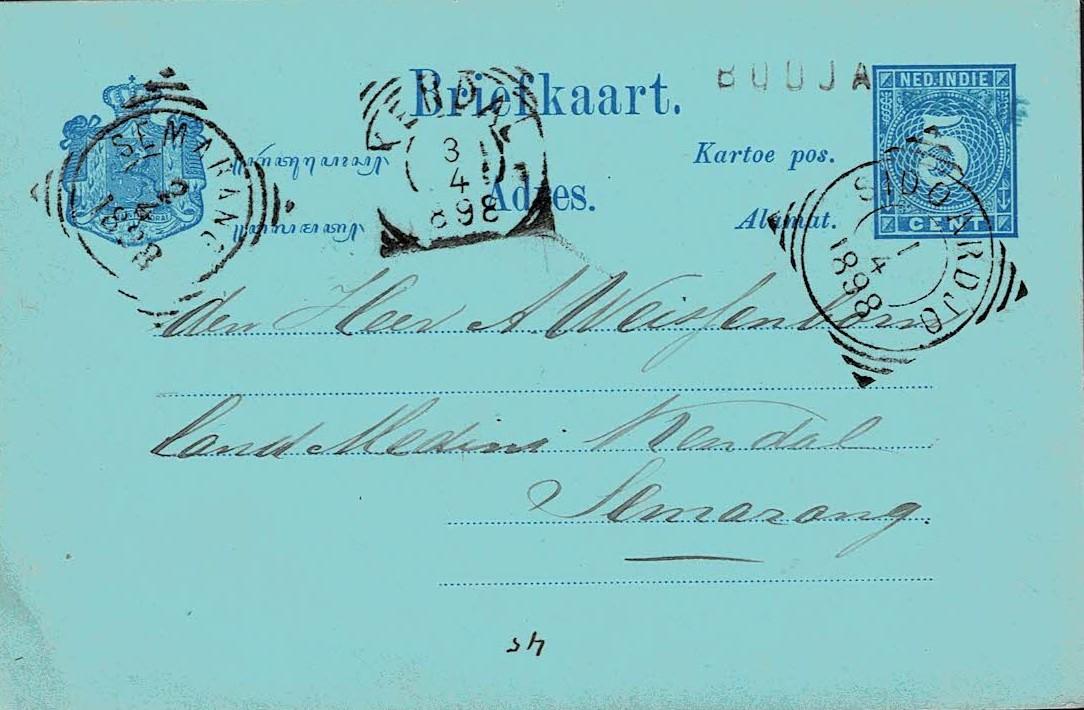 BUUJA
NED. INDIE
5
CENT
Briefkaart.
Kartoe pos.
Adres.
Alamat.
SEMARANG
2
4
1898
3
4
898
SIDOARDJO
1
4
1898
den Heer A Weissenborn
land Medini Kendal
Semarang.